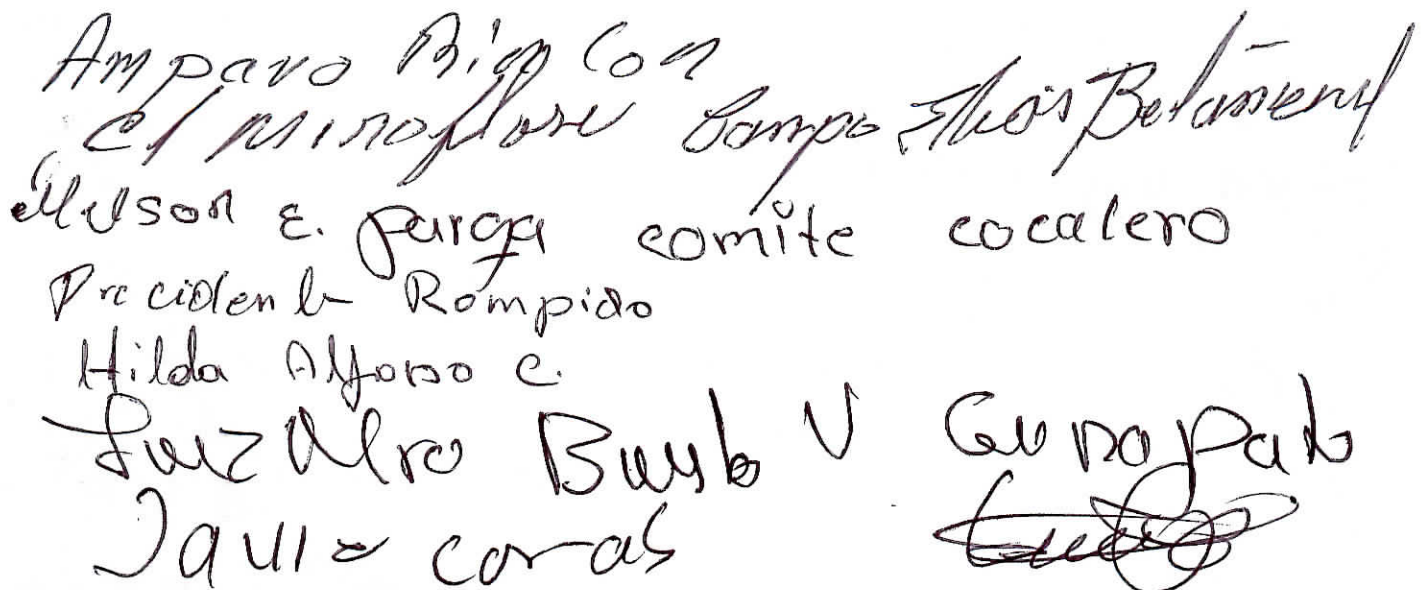 Amparo Rincon
el miraflore Campo Elias Betan
Nelson E. parga comite cocalero
Precidente Rompido
Hilda Alfonso C.
Luiz Alvo Busto V
Javie corras